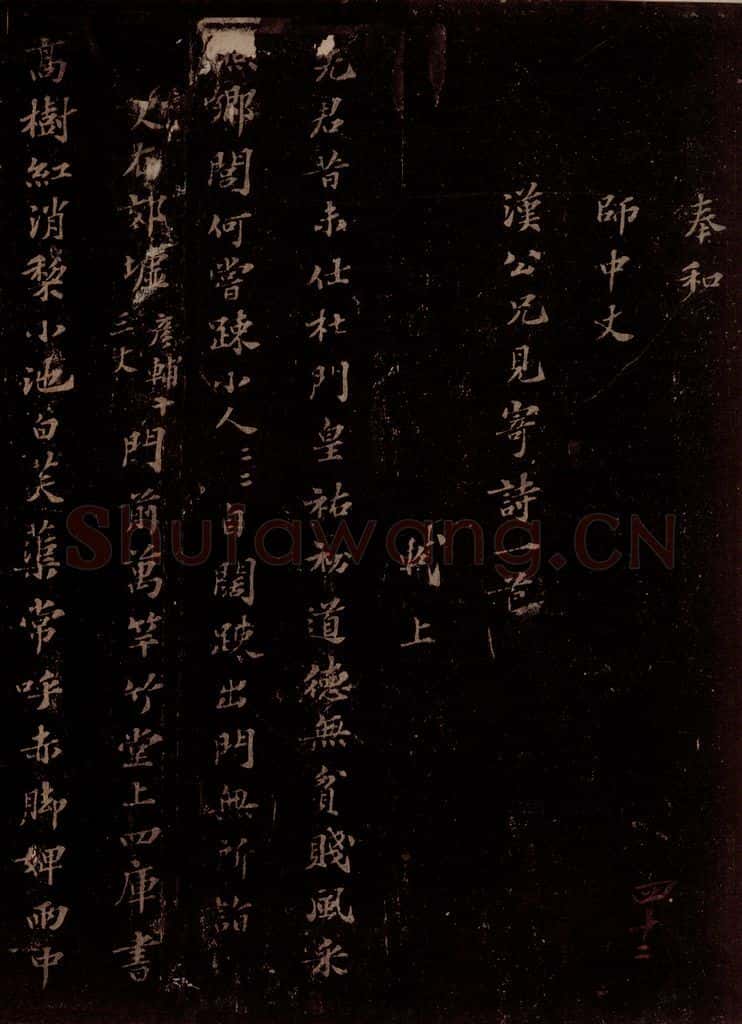 奉和
師中丈
漢公兄見寄詩一首
軾上
先君昔未仕杜門皇祐初道德無貧賤風采
照鄉閭何嘗踈小人〻〻自闊踈出門無所詣
史在郊墟彥輔十三丈門前萬竿竹堂上四庫書
高樹紅消棃小池白芙蕖常呼赤脚婢雨中
四十二
Shufawang.CN